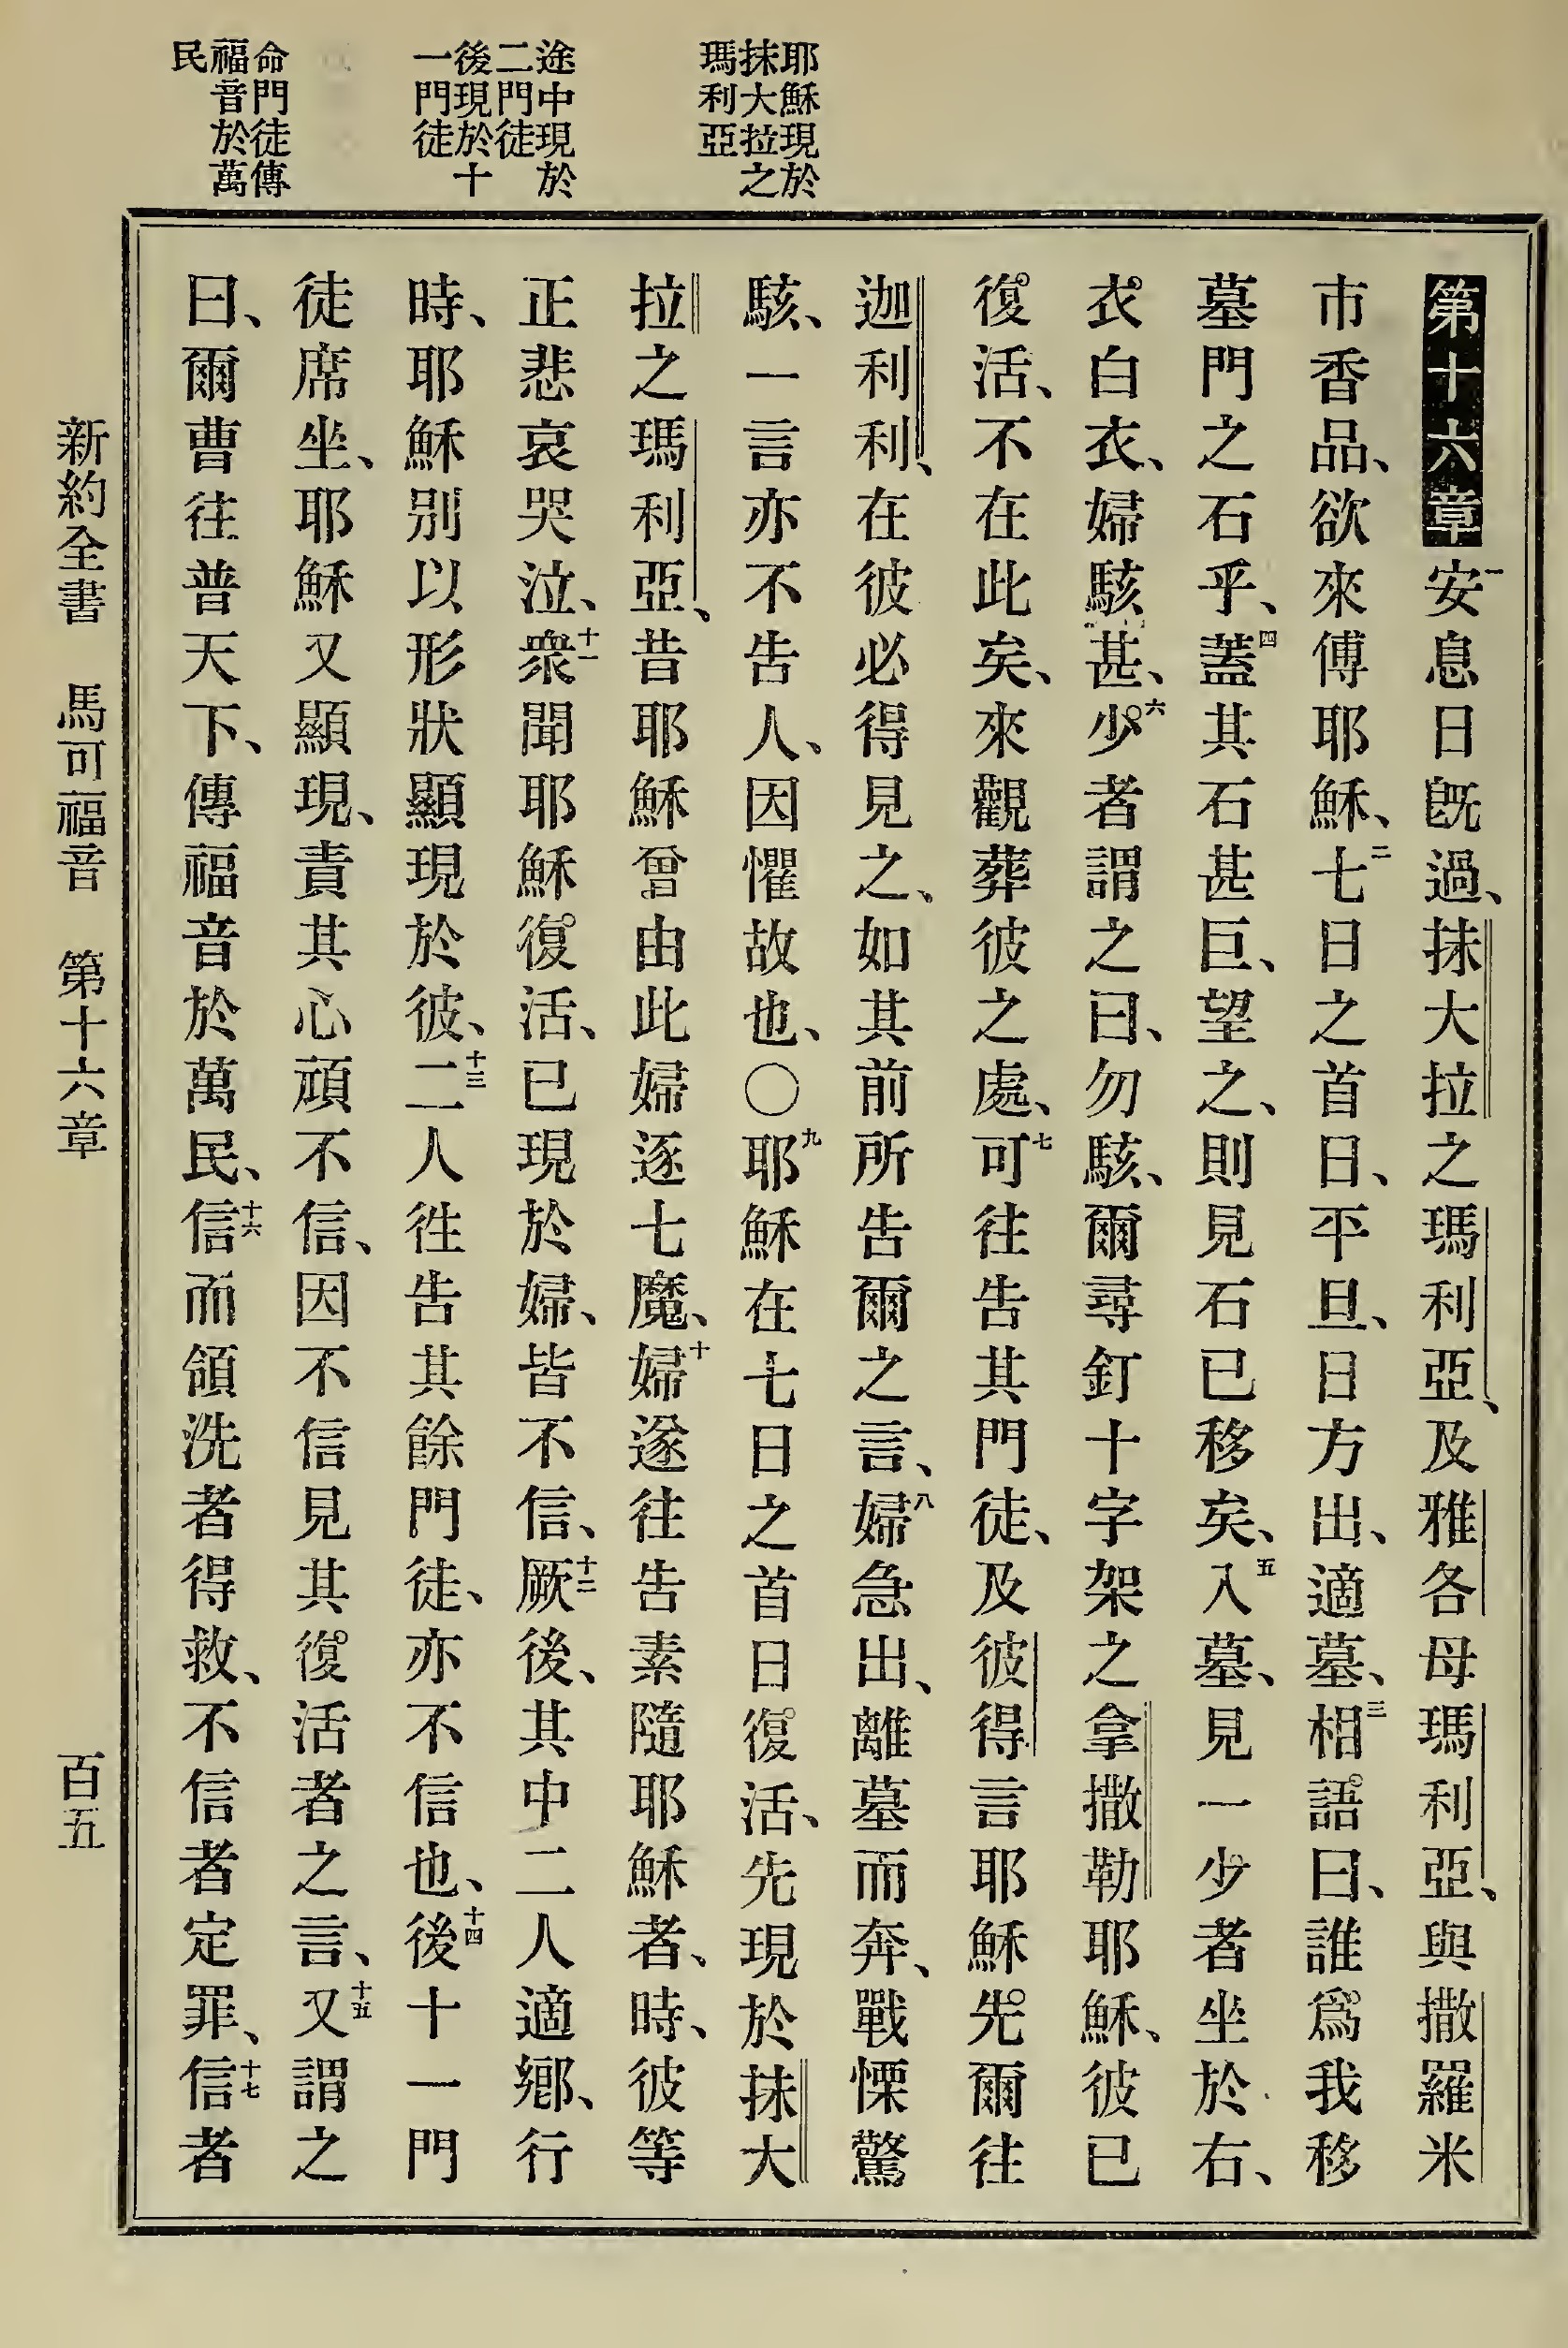 耶穌現於
抹大拉之
瑪利亞
途中現於
二門徒
後現於十
一門徒
命門徒傳
福音於萬
民
第十六章一安息日旣過、抹大拉之瑪利亞、及雅各母瑪利亞、與撒羅米
市香品、欲來傅耶穌、二七日之首日、平旦、日方出、適墓、三相語曰、誰爲我移
墓門之石乎、四蓋其石甚巨、望之、則見石已移矣、五入墓、見一少者坐於右、
衣白衣、婦駭甚、六少者謂之曰、勿駭、爾尋釘十字架之拿撒勒耶穌、彼已
復活、不在此矣、來觀葬彼之處、七可往告其門徒、及彼得言耶穌先爾往
迦利利、在彼必得見之、如其前所告爾之言、八婦急出、離墓而奔、戰慄驚
駭、一言亦不告人、因懼故也、〇九耶穌在七日之首日復活、先現於抹大
拉之瑪利亞、昔耶穌曾由此婦逐七魔、十婦遂往告素隨耶穌者、時、彼等
正悲哀哭泣、十一衆聞耶穌復活、已現於婦、皆不信、十二厥後、其中二人適鄉、行
時、耶穌別以形狀顯現於彼、十三二人徃告其餘門徒、亦不信也、十四後十一門
徒席坐、耶穌又顯現、責其心頑不信、因不信見其復活者之言、十五又謂之
曰、爾曹往普天下、傳福音於萬民、十六信而領洗者得救、不信者定罪、十七信者
新約全書 馬可福音 第十六章 百五